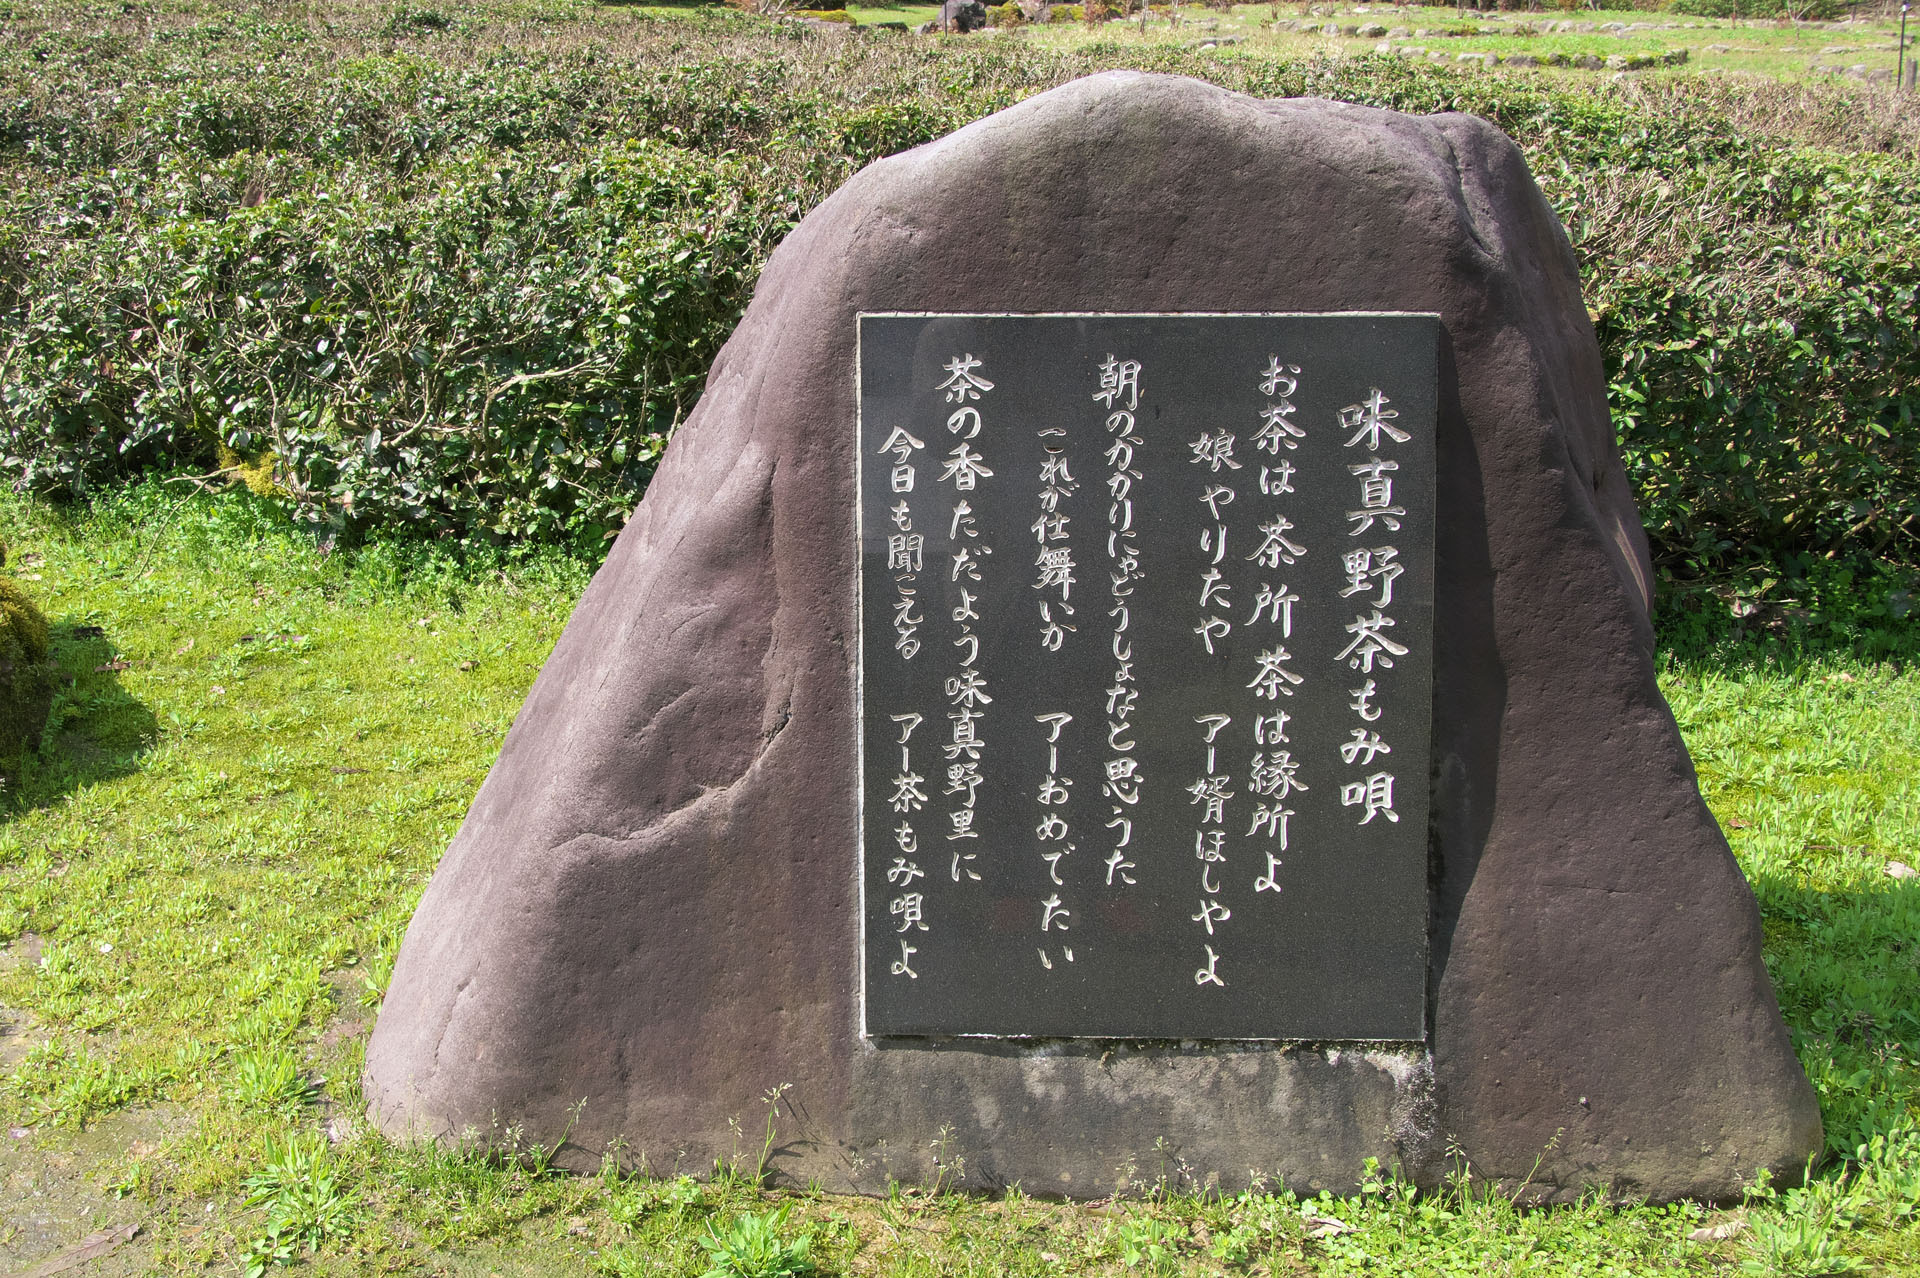 味真野茶もみ唄
お茶は茶所茶は縁所よ
娘やりたや アー婿ほしやよ
朝のかかりにゃどうしょなと思うた
これが仕舞いか アーおめでたい
茶の香ただよう味真野里に
今日も聞こえる アー茶もみ唄よ